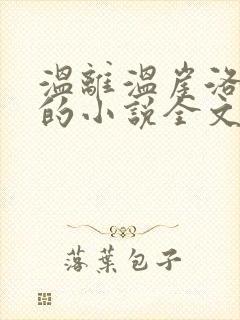 溫離溫崖洛
的小說全文
落葉包子